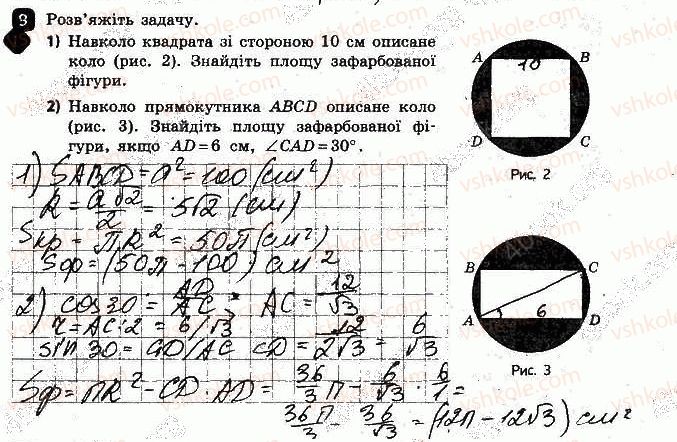 8 Розв'яжіть задачу.
1) Навколо квадрата зі стороною 10 см описане
коло (рис. 2). Знайдіть площу зафарбованої
фігури.
2) Навколо прямокутника ABCD описане коло
(рис. 3). Знайдіть площу зафарбованої фі-
гури, якщо AD = 6 см, ∠CAD = 30°.
A 10 B
D C
Рис. 2
1) SABCD = a² = 100 (см²)
R = a√2/2 = 5√2 (см)
Sкр = ПR² = 50П (см²)
Sф = (50П - 100) см²
B C
A 6 D
Рис. 3
2) cos 30 = AD/AC; AC = 12/√3
r = AC : 2 = 6/√3
sin 30 = CD/AC CD = 12/2√3 = 6/√3
Sф = ПR² - CD · AD = 36/3 П - 6/√3 · 6/1 =
36П/3 - 36/√3 = (12П - 12√3) см²